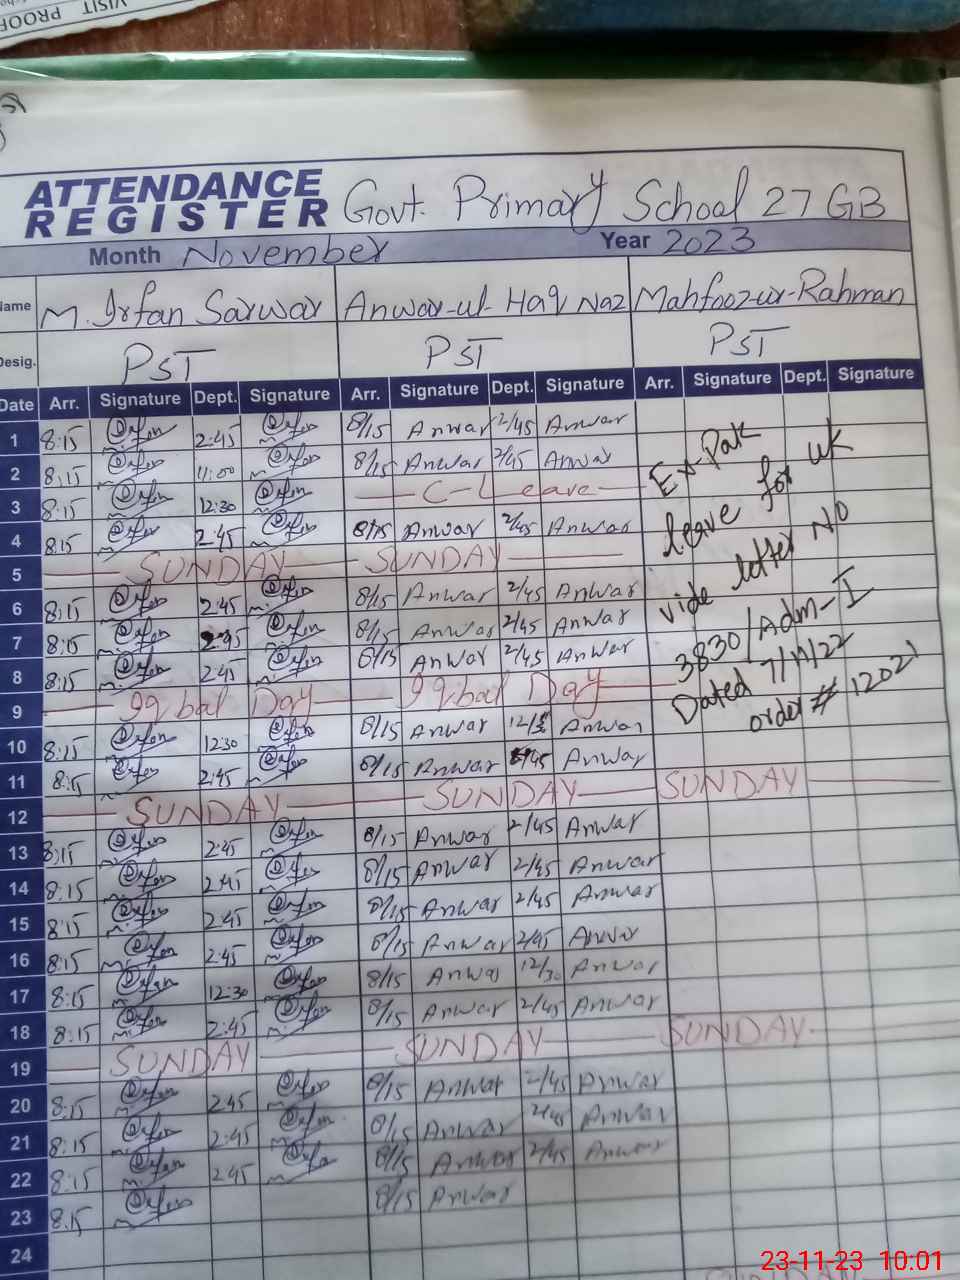 VISIT PROOF
ATTENDANCE REGISTER Govt. Primary School 27 GB
Month November Year 2023
Name M. Irfan Sarwar Anwar-ul-Haq Naz Mahfooz-ur-Rahman
Desig. PST PST PST
Date Arr. Signature Dept. Signature Arr. Signature Dept. Signature Arr. Signature Dept. Signature
1 8:15 Irfan 2:45 Irfan 8/15 Anwar 2/45 Anwar
2 8:15 Irfan 11:00 Irfan 8/15 Anwar 2/45 Anwar
3 8:15 Irfan 12:30 Irfan C-Leave
4 8:15 Irfan 2:45 Irfan 8/15 Anwar 2/45 Anwar
5 SUNDAY SUNDAY
6 8:15 Irfan 2:45 Irfan 8/15 Anwar 2/45 Anwar
7 8:15 Irfan 2:45 Irfan 8/15 Anwar 2/45 Anwar
8 8:15 Irfan 2:45 Irfan 8/15 Anwar 2/45 Anwar
9 Iqbal Day Iqbal Day
10 8:15 Irfan 12:30 Irfan 8/15 Anwar Anwar
11 8:15 Irfan 2:45 Irfan 8/15 Anwar Anwar
Ex-Pak
leave for UK
vide letter No
3830/Adm-I
Dated 7/11/22
order # 12021
12 SUNDAY SUNDAY SUNDAY
13 8:15 Irfan 2:45 Irfan 8/15 Anwar 2/45 Anwar
14 8:15 Irfan 2:45 Irfan 8/15 Anwar 2/45 Anwar
15 8:15 Irfan 2:45 Irfan 8/15 Anwar 2/45 Anwar
16 8:15 Irfan 2:45 Irfan 8/15 Anwar 2/45 Anwar
17 8:15 Irfan 12:30 Irfan 8/15 Anwar 12/30 Anwar
18 8:15 Irfan 2:45 Irfan 8/15 Anwar 2/45 Anwar
19 SUNDAY SUNDAY SUNDAY
20 8:15 Irfan 2:45 Irfan 8/15 Anwar 2/45 Anwar
21 8:15 Irfan 2:45 Irfan 8/15 Anwar 2/45 Anwar
22 8:15 Irfan 2:45 Irfan 8/15 Anwar 2/45 Anwar
23 8:15 Irfan 8/15 Anwar
24
23-11-23 10:01